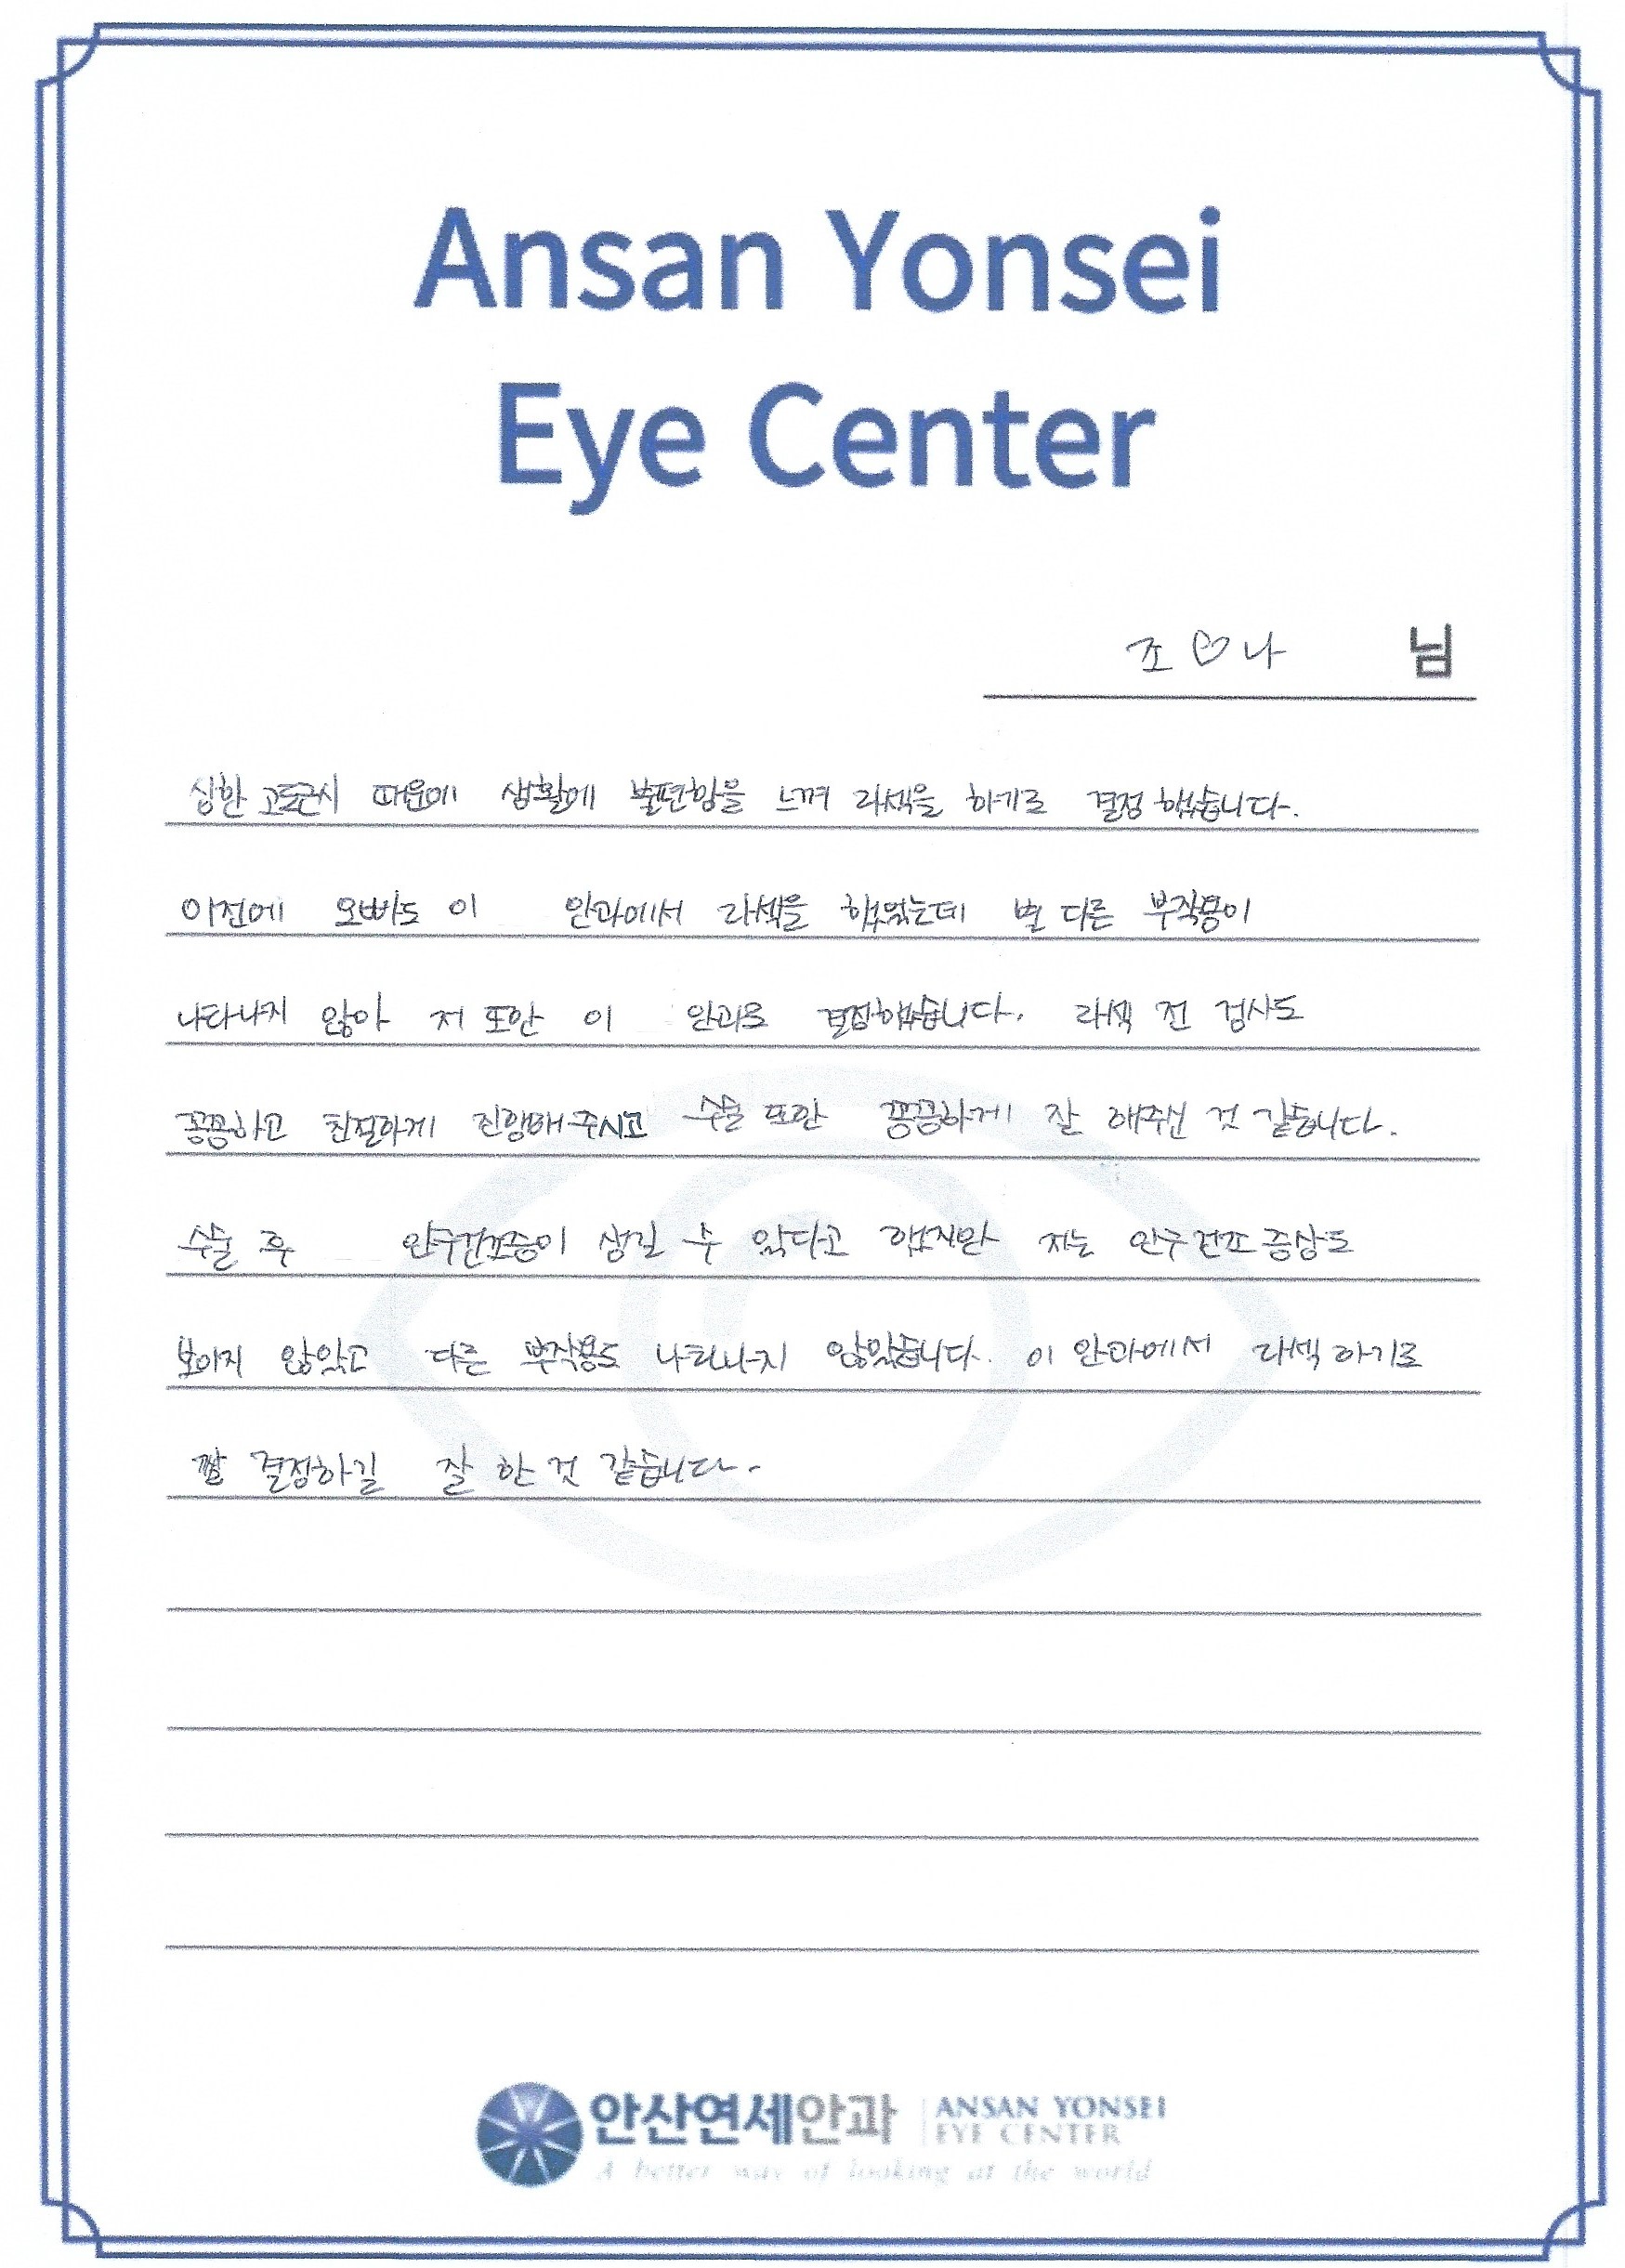 Ansan Yonsei
Eye Center
조♡나 님
심한 고도근시 때문에 생활에 불편함을 느껴 라섹을 하기로 결정 했습니다.
이전에 오빠도 이 안과에서 라섹을 했었는데 별 다른 부작용이
나타나지 않아 저 또한 이 안과로 결정했습니다. 라섹 전 검사도
꼼꼼하고 친절하게 진행해주시고 수술 또한 꼼꼼하게 잘 해주신 것 같습니다.
수술 후 안구건조증이 생길 수 있다고 했지만 저는 안구 건조 증상도
보이지 않았고 다른 부작용도 나타나지 않았습니다. 이 안과에서 라섹 하기로
결정하길 잘 한 것 같습니다.
안산연세안과 ANSAN YONSEI
EYE CENTER
A better way of looking at the world